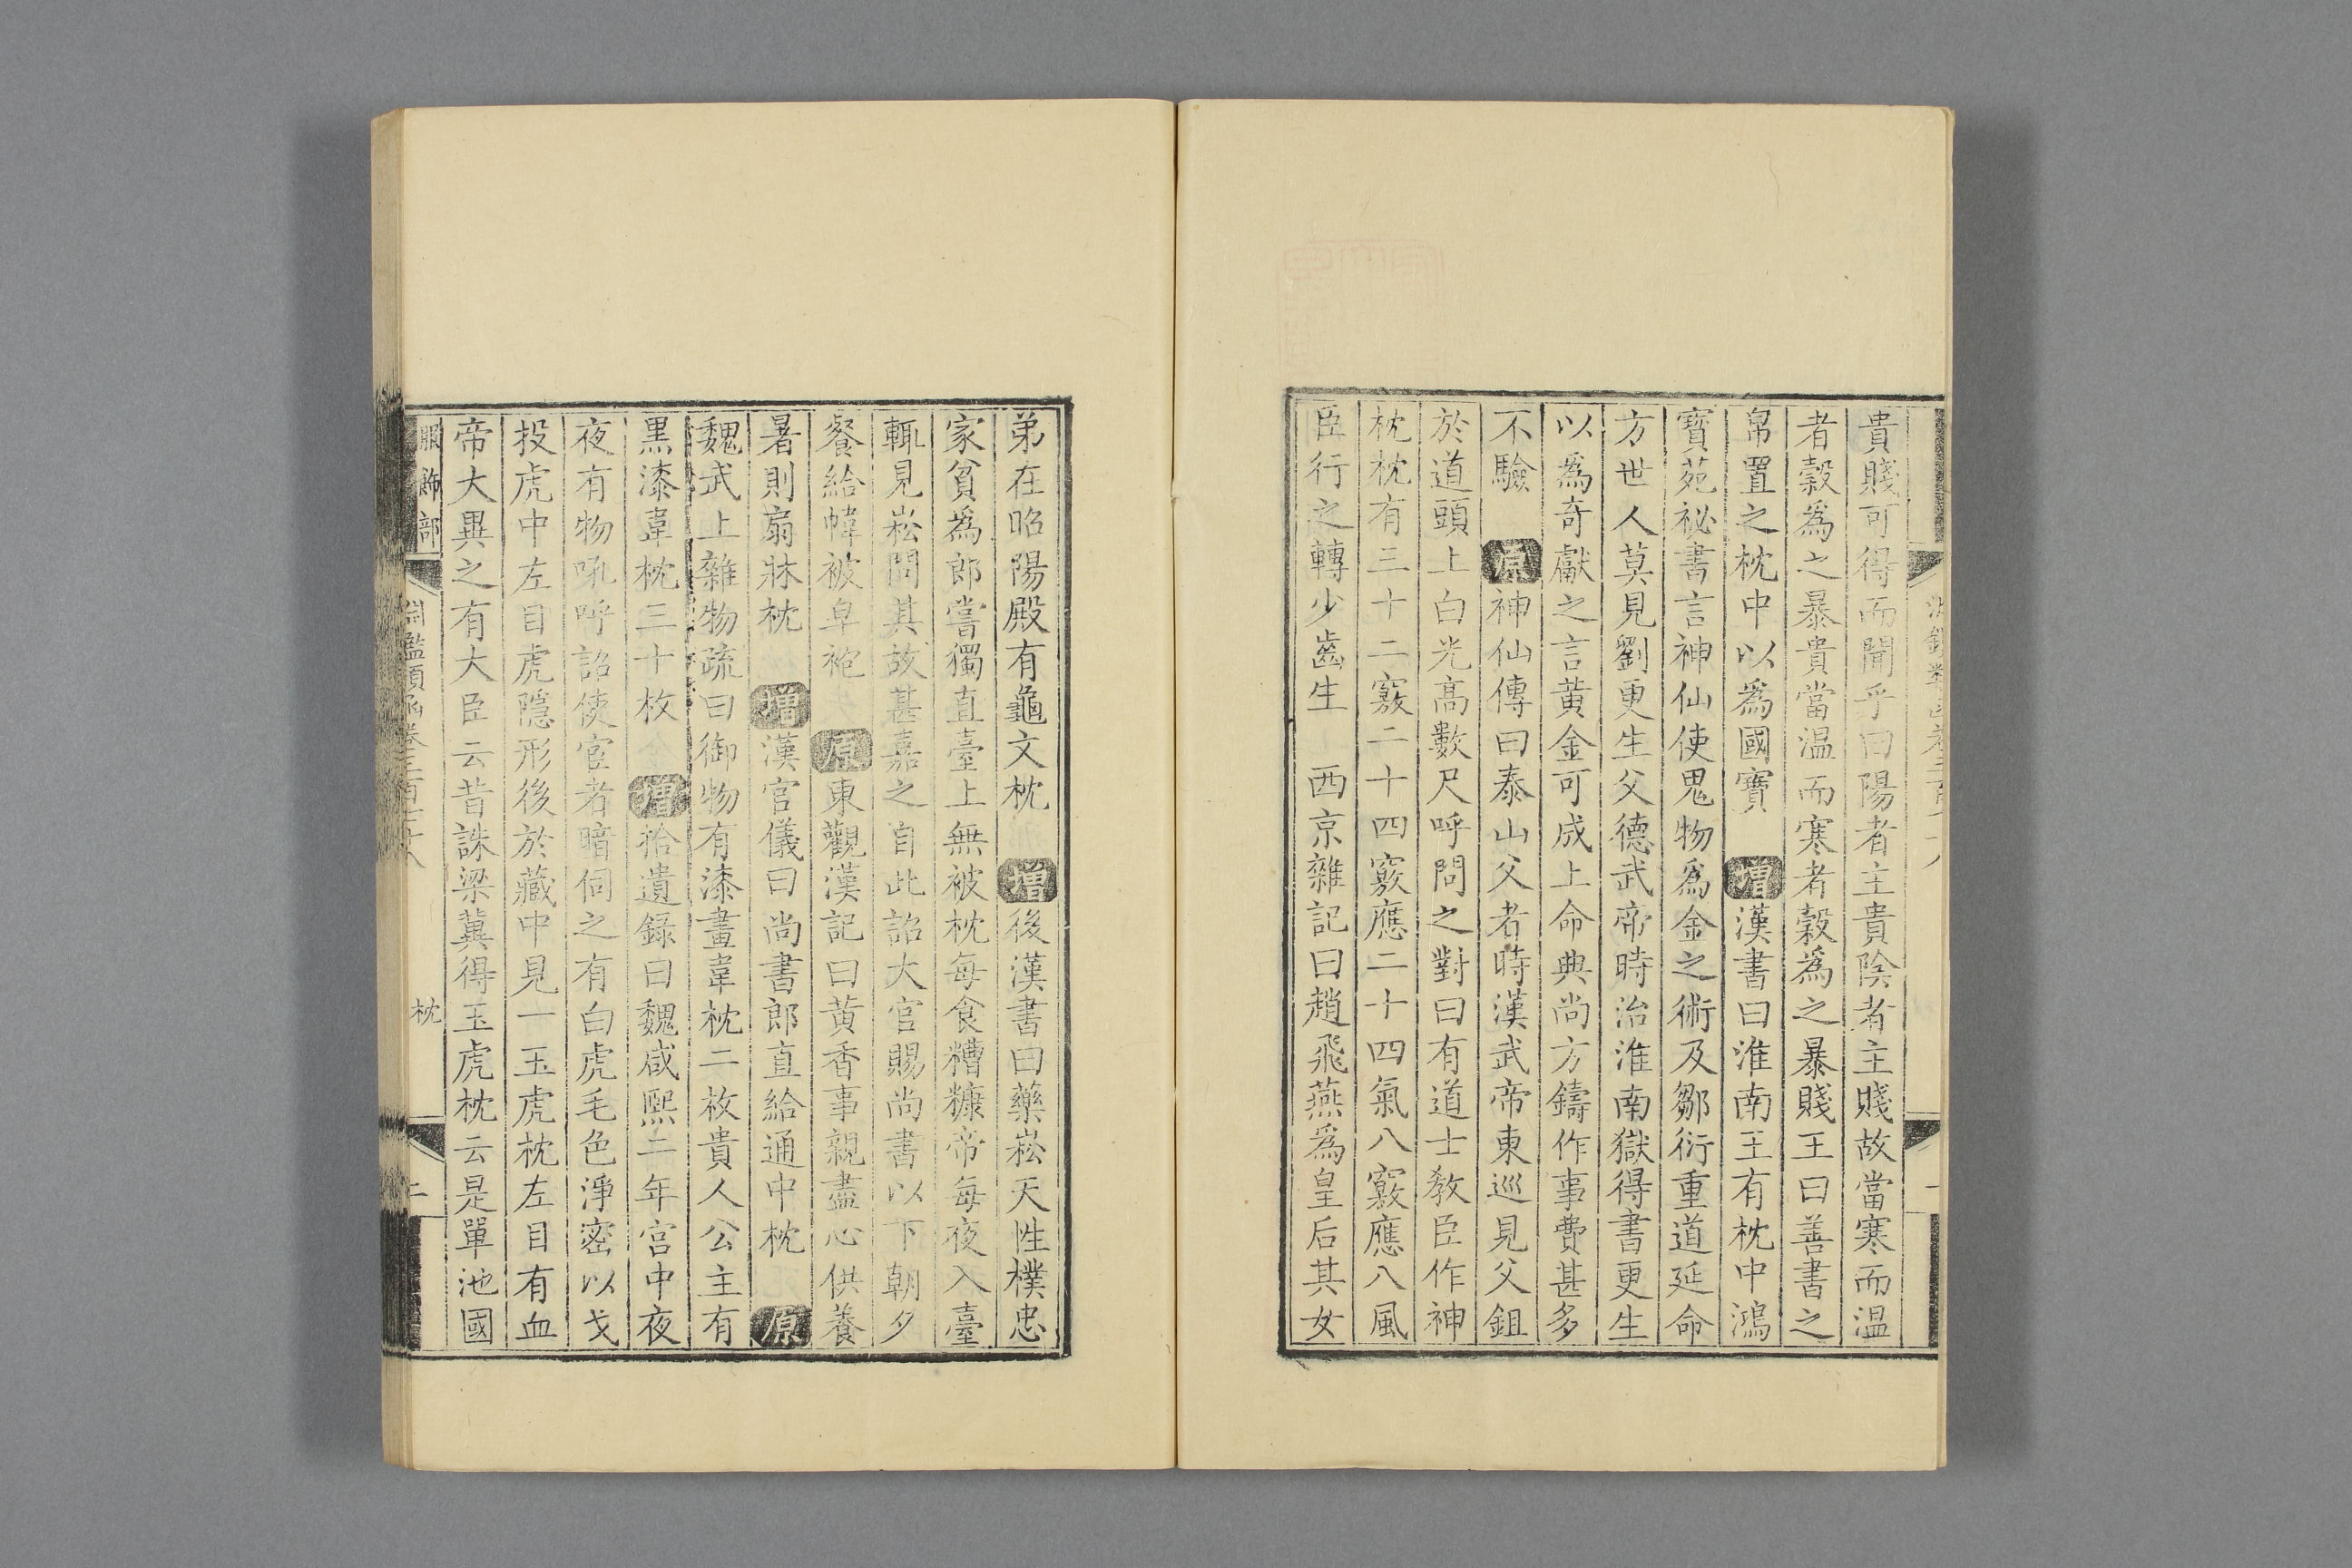 貴賤可得而聞乎曰陽者主貴陰者主賤故當寒而温
者穀爲之暴貴當温而寒者穀爲之暴賤王曰善書之
帛置之枕中以爲國寳 增 漢書曰淮南王有枕中鴻
寳苑祕書言神仙使鬼物爲金之術及鄒衍重道延命
方世人莫見劉更生父德武帝時治淮南獄得書更生
以爲奇獻之言黄金可成上命典尚方鑄作事費甚多
不驗 原 神仙傳曰泰山父者時漢武帝東巡見父鉏
於道頭上白光髙數尺呼問之對曰有道士教臣作神
枕枕有三十二竅二十四竅應二十四氣八竅應八風
臣行之轉少齒生 西京雜記曰趙飛燕爲皇后其女
弟在昭陽殿有龜文枕 增 後漢書曰藥崧天性樸忠
家貧爲郎嘗獨直臺上無被枕每食糟糠帝每夜入臺
輒見崧問其故甚嘉之自此詔大官賜尚書以下朝夕
餐給幃被皁袍 原 東觀漢記曰黄香事親盡心供養
暑則扇牀枕 增 漢官儀曰尚書郎直給通中枕 原
魏武上雜物疏曰御物有漆畫韋枕二枚貴人公主有
黒漆韋枕三十枚 增 拾遺録曰魏咸熙二年宫中夜
夜有物吼呼詔使宦者暗伺之有白虎毛色淨密以戈
投虎中左目虎隠形後於藏中見一玉虎枕左目有血
帝大異之有大臣云昔誅梁冀得玉虎枕云是單池國
服飾部
淵鑑類函卷三百七十八
枕
二